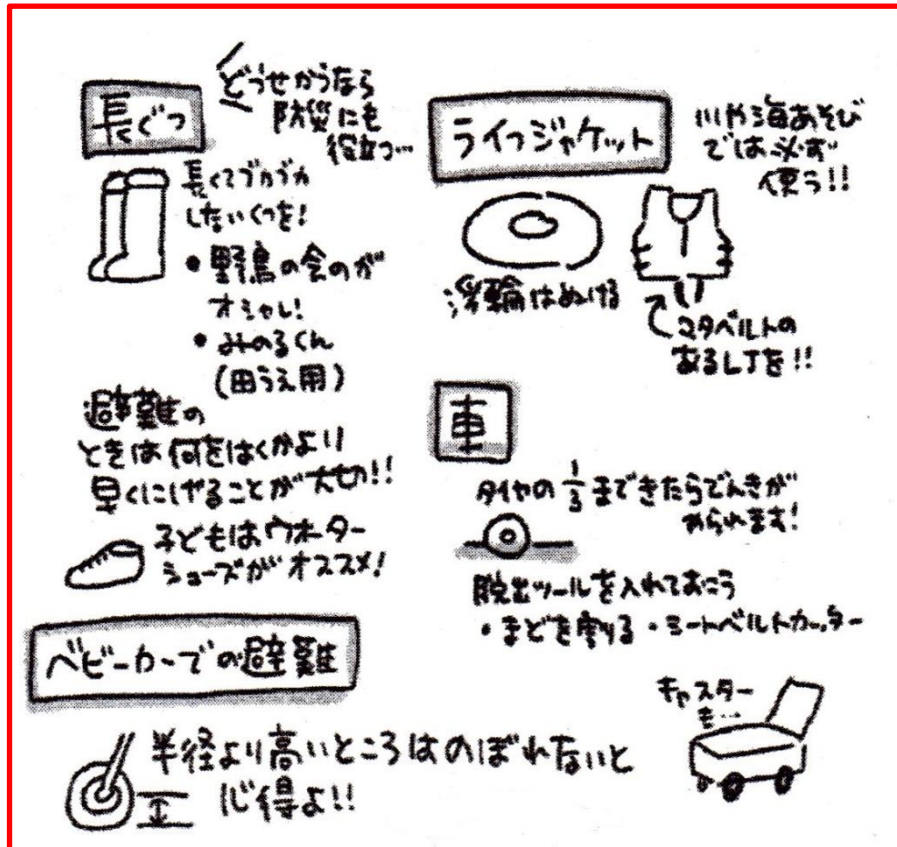 長ぐつ
どうせかうなら
防災にも
役立つ…
長くてブカブカ
しないくつを!
・野鳥の会のが
オシャレ!
・みのるくん
(田うえ用)
避難の
ときは何をはくかより
早くにげることが大切!!
子どもはウォーター
シューズがオススメ!
ライフジャケット
川や海あそび
では必ず
使う!!
浮輪はぬける
マタベルトの
あるLJを!!
車
タイヤの1/3まできたらでんきが
められます!
脱出ツールを入れておこう
・まどを割る・シートベルトカッター
ベビーカーでの避難
半径より高いところはのぼれないと
心得よ!!
キャスター
も…